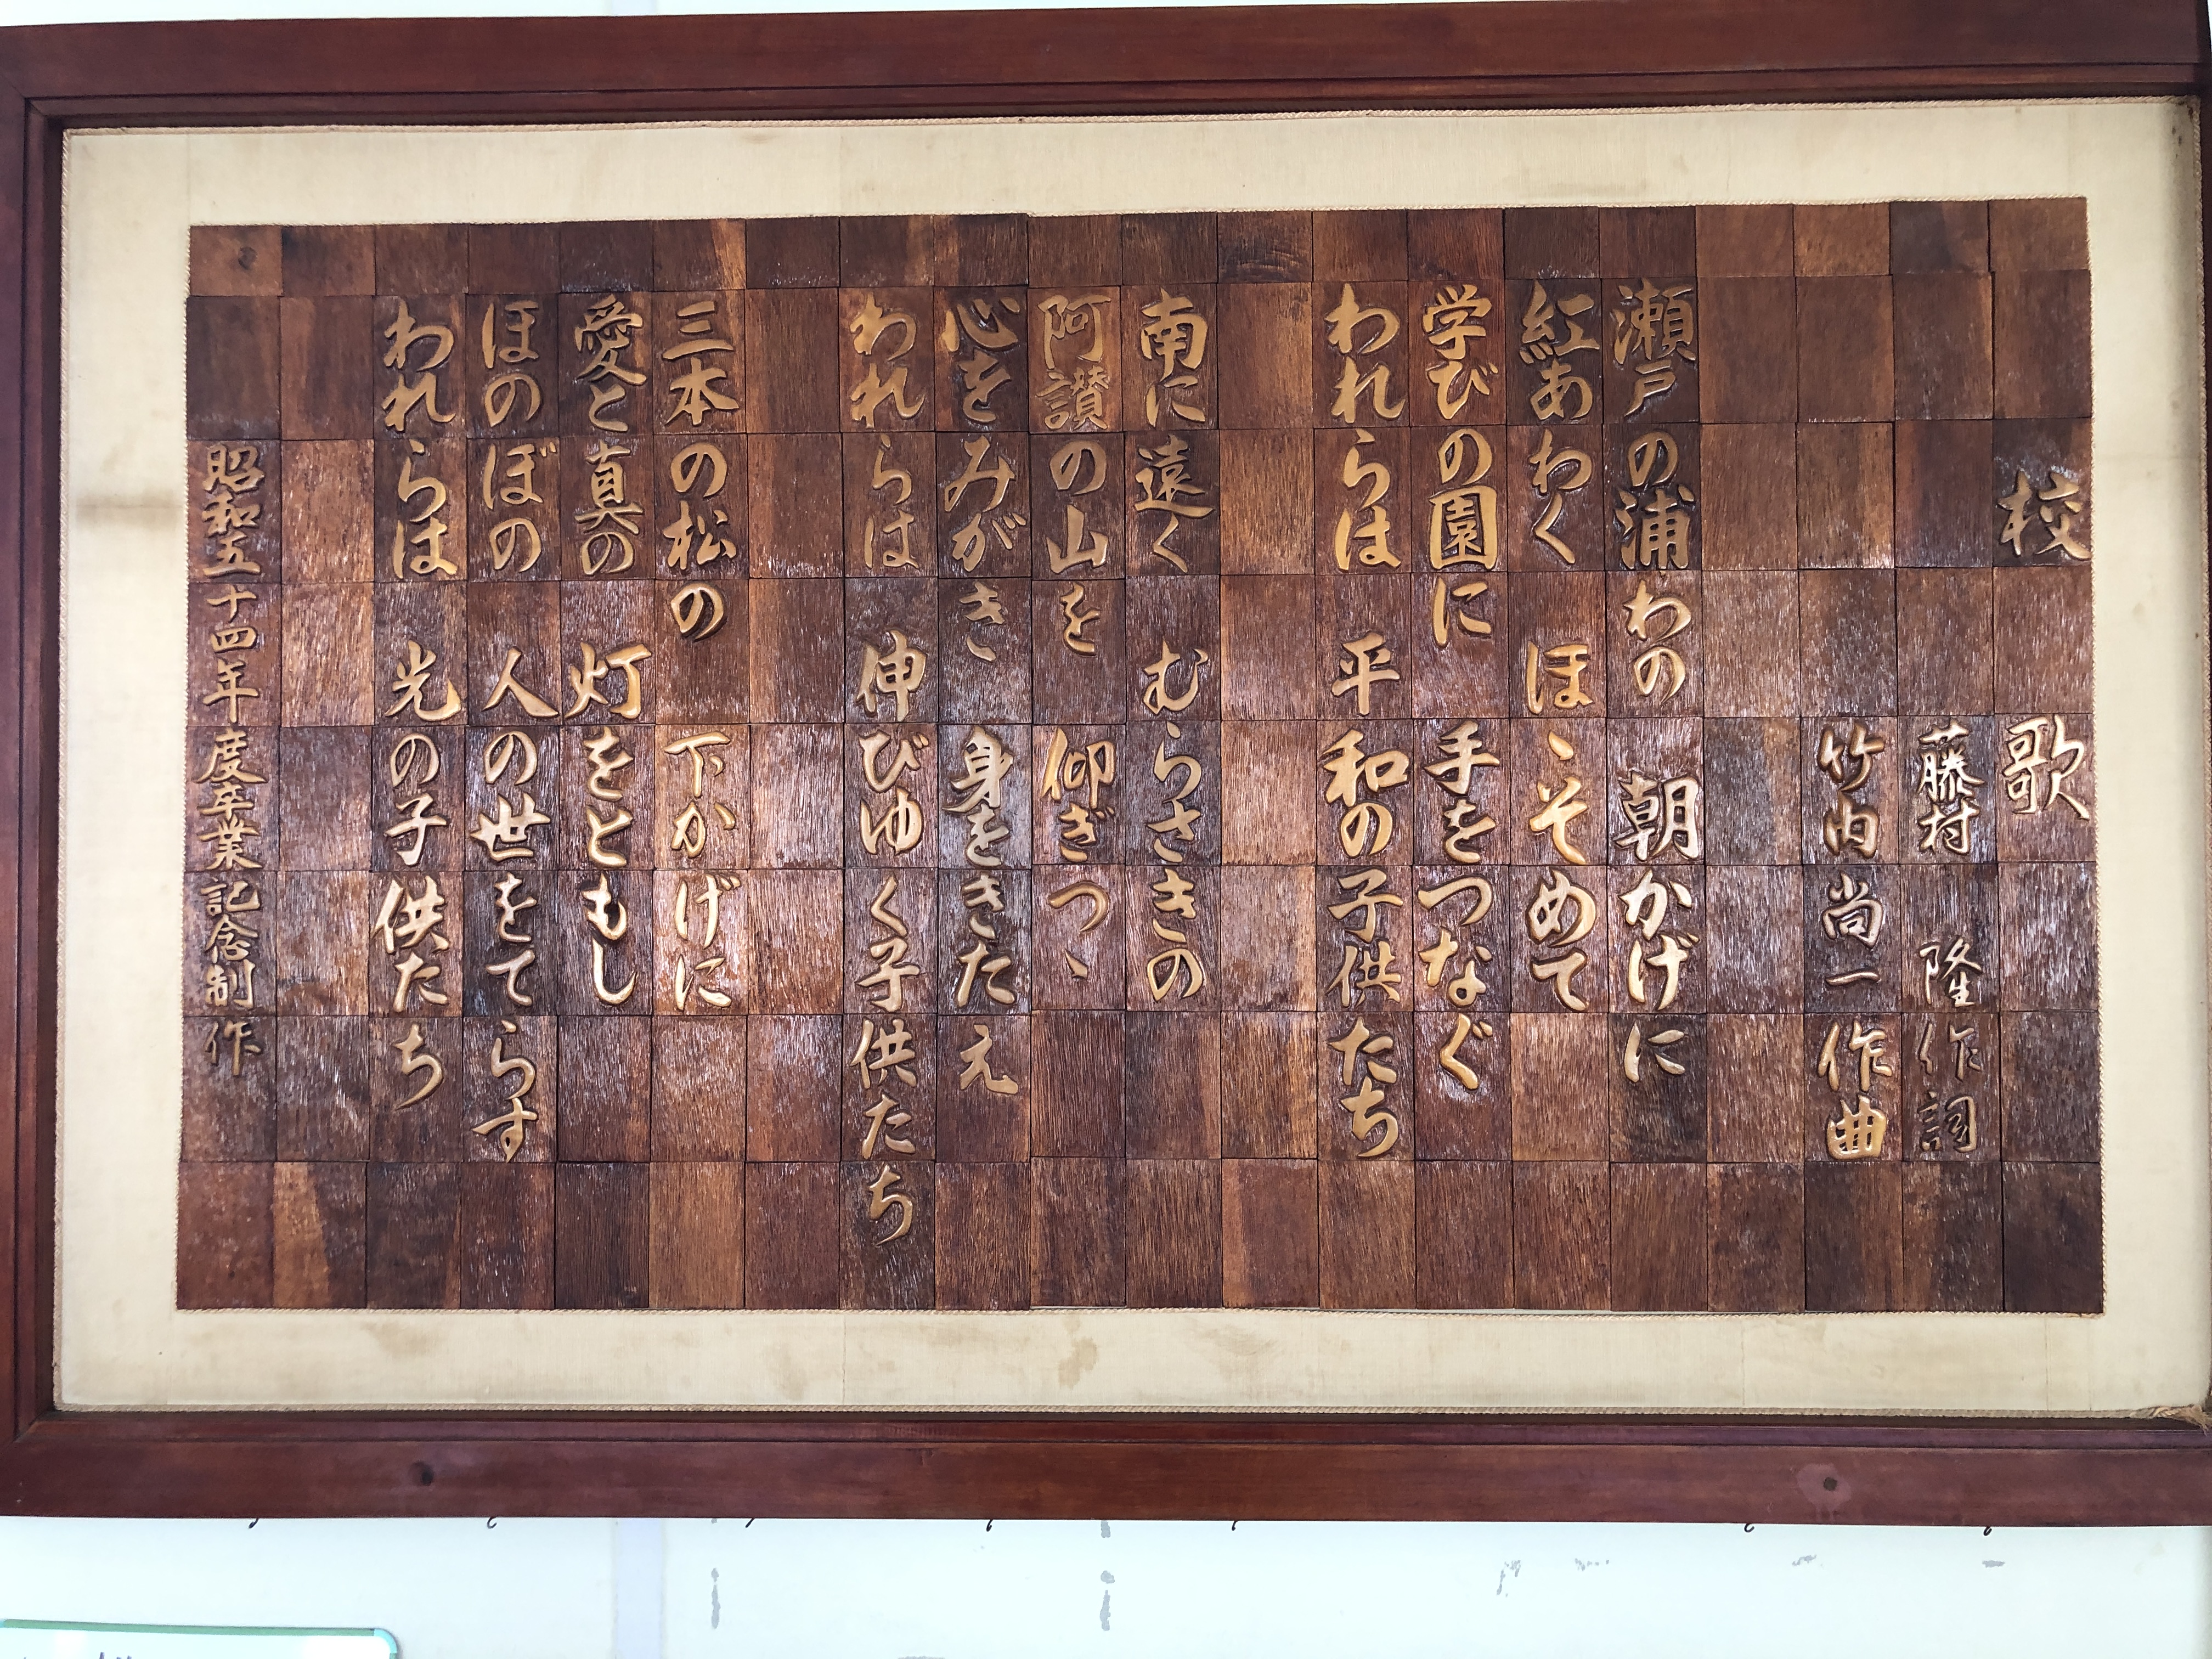 校歌
藤村 隆 作詞
竹内尚一 作曲
瀬戸の浦わの 朝かげに
紅あわく ほゝそめて
学びの園に 手をつなぐ
われらは 平和の子供たち
南に遠く むらさきの
阿讃の山を 仰ぎつゝ
心をみがき 身をきたえ
われらは 伸びゆく子供たち
三本の松の 下かげに
愛と真の 灯をともし
ほのぼの 人の世をてらす
われらは 光の子供たち
昭和五十四年度卒業記念制作